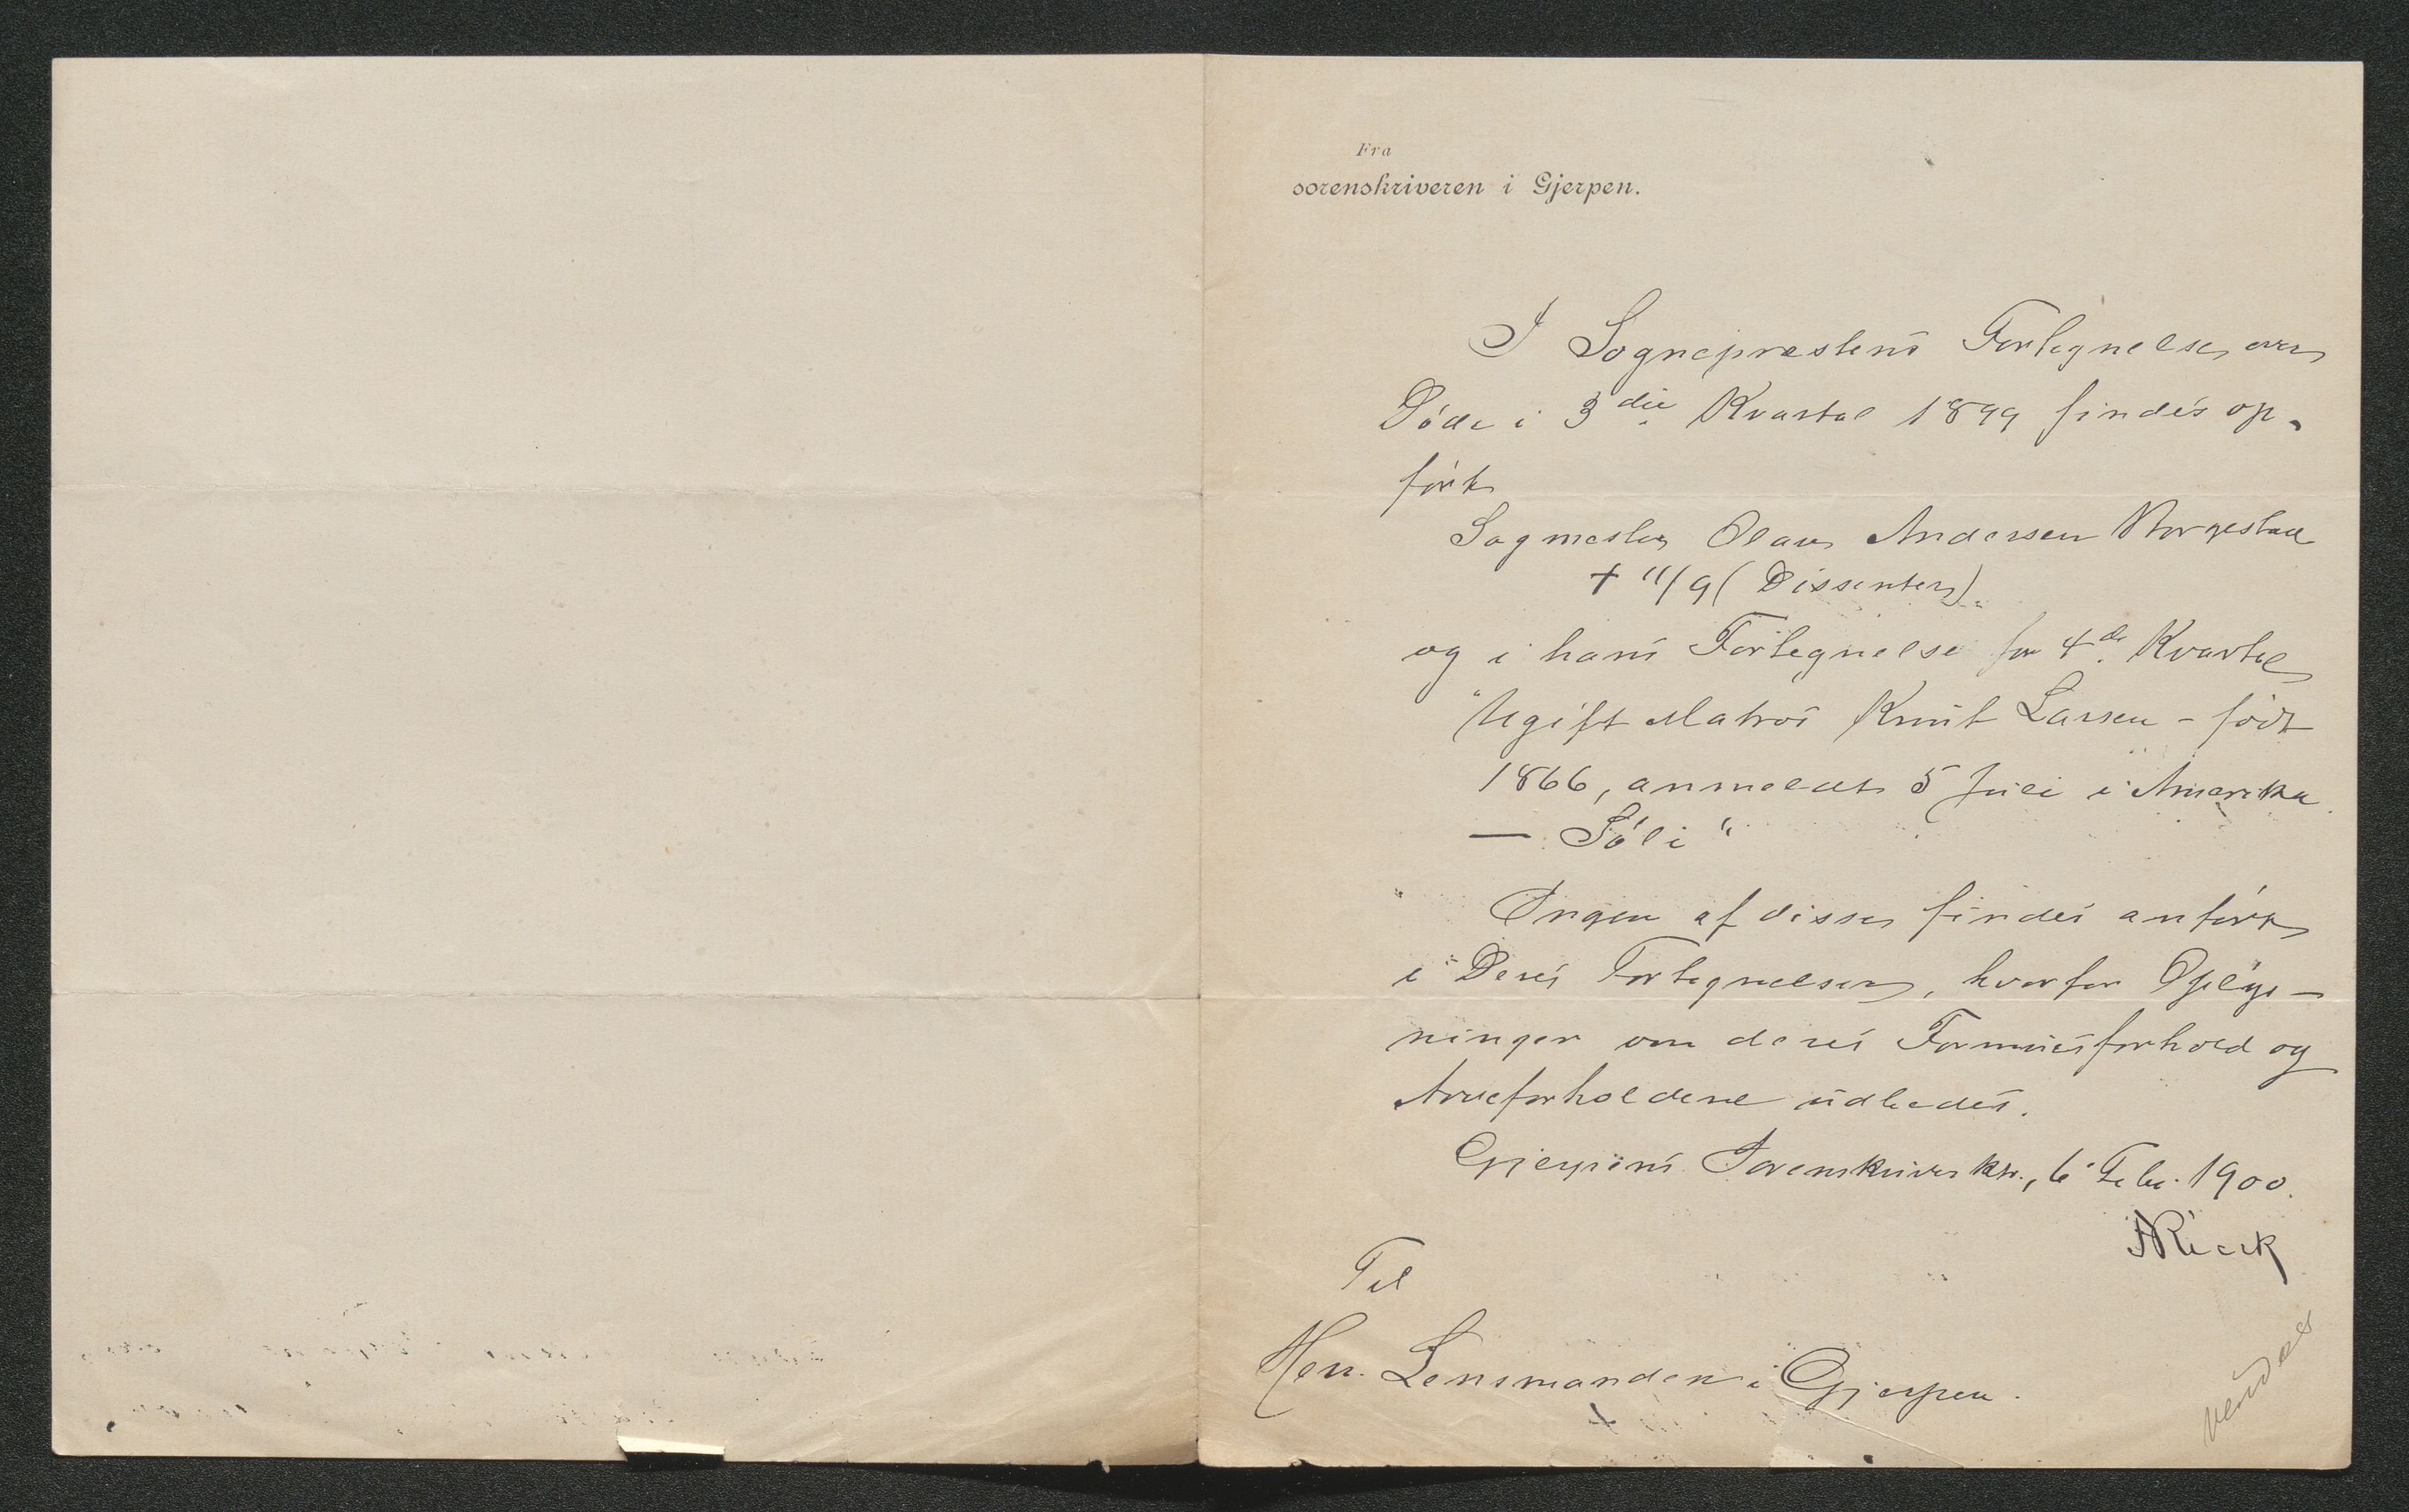 Fra
sorenskriveren i Gjerpen.
I Sogneprestens Fortegnelse over
Døde i 3die Kvartal 1899 findes op-
ført
Sagmester Olaus Andersen Borgestad
† 11/9 (Dissenter)
og i hans Fortegnelse for 4de Kvartal
"Ugift Matros Knut Larsen - født
1866, anmeldt 5 Juli i Amerika
— Søli"
Ingen af disse findes anført
i Deres Fortegnelser, hvorfor Oplys-
ninger om deres Formuesforhold og
Arveforholdene udbedes.
Gjerpens Sorenskriverktr., 6 Febr. 1900.
Rieck
Til
Herr Lensmanden i Gjerpen.
vendes